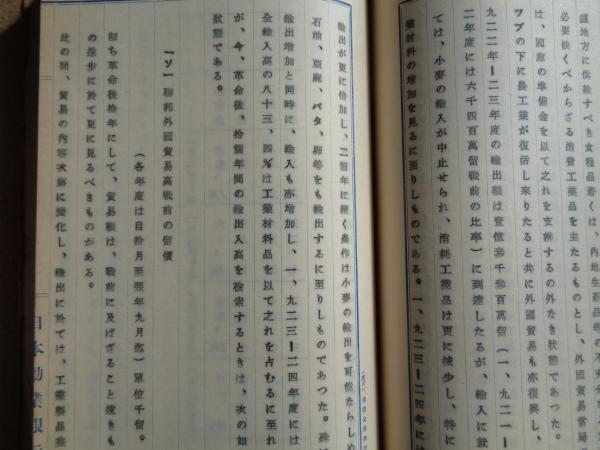 議地方に供給すべき食糧品若くは、内地生産品等の不充分
必要缺くべからざる消費工業品を主たるものとし、外國貿易當局
は、國庫の準備金を以て之れを支辨するの外なき狀態であつた。
ツプの下に農工業が復活し來りたると共に外國貿易も亦復興し、
九二二年ー二三年度の輸出額は壹億參千參百萬留（一、九二一ー
二年度には六千四百萬留戰前の比率）に到達したるが、輸入に就
ては、小麥の輸入が中止せられ、消耗工業品は更に減少し、特に
業材料の增加を見るに至りしものである。一、九二三ー二四年には
輸出が更に倍加し、二箇年に續く農作は小麥の輸出を可能ならしめ
石油、亞麻、バタ、卵等をも輸出するに至りしものであつた。
輸出增加と同時に、輸入も亦增加し、一、九二三ー二四年度には
全輸入高の八十三、四％は工業材料品を以て之れを占むるに至れ
が、今、革命後、拾箇年間の輸出入高を檢索するときは、次の如
狀態である。
「ソ」聯邦外國貿易高戰前の留價
（各年度は自拾月至翌年九月迄）單位千留。
卽ち革命後拾年にして、貿易額は、戰前に及ばざること遠きも
の進步に於て更に見るべきものがある。
此の間、貿易の內容次第に變化し、輸出に於ては、工業製品並
日本勸業銀行